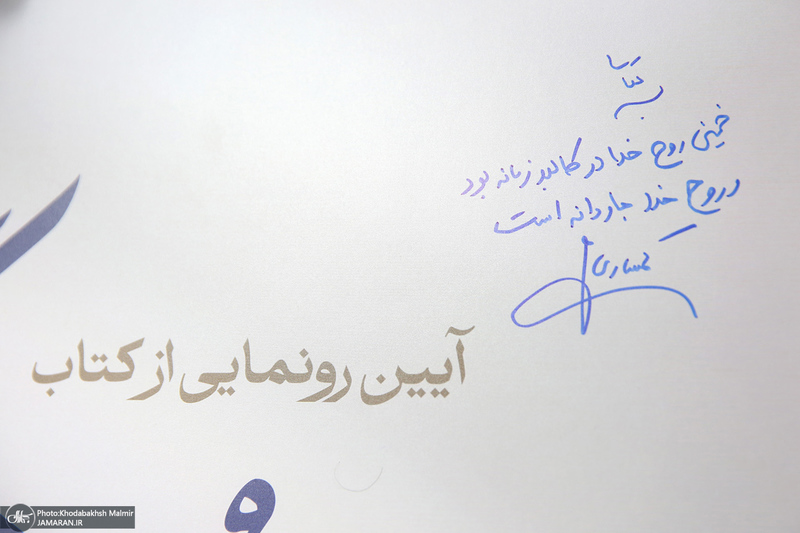 خمینی روح خدا در کالبد زمانه بود
و روح خدا جاودانه است
آیین رونمایی از کتاب
Photo:Khodabakhsh Malmir
JAMARAN.IR